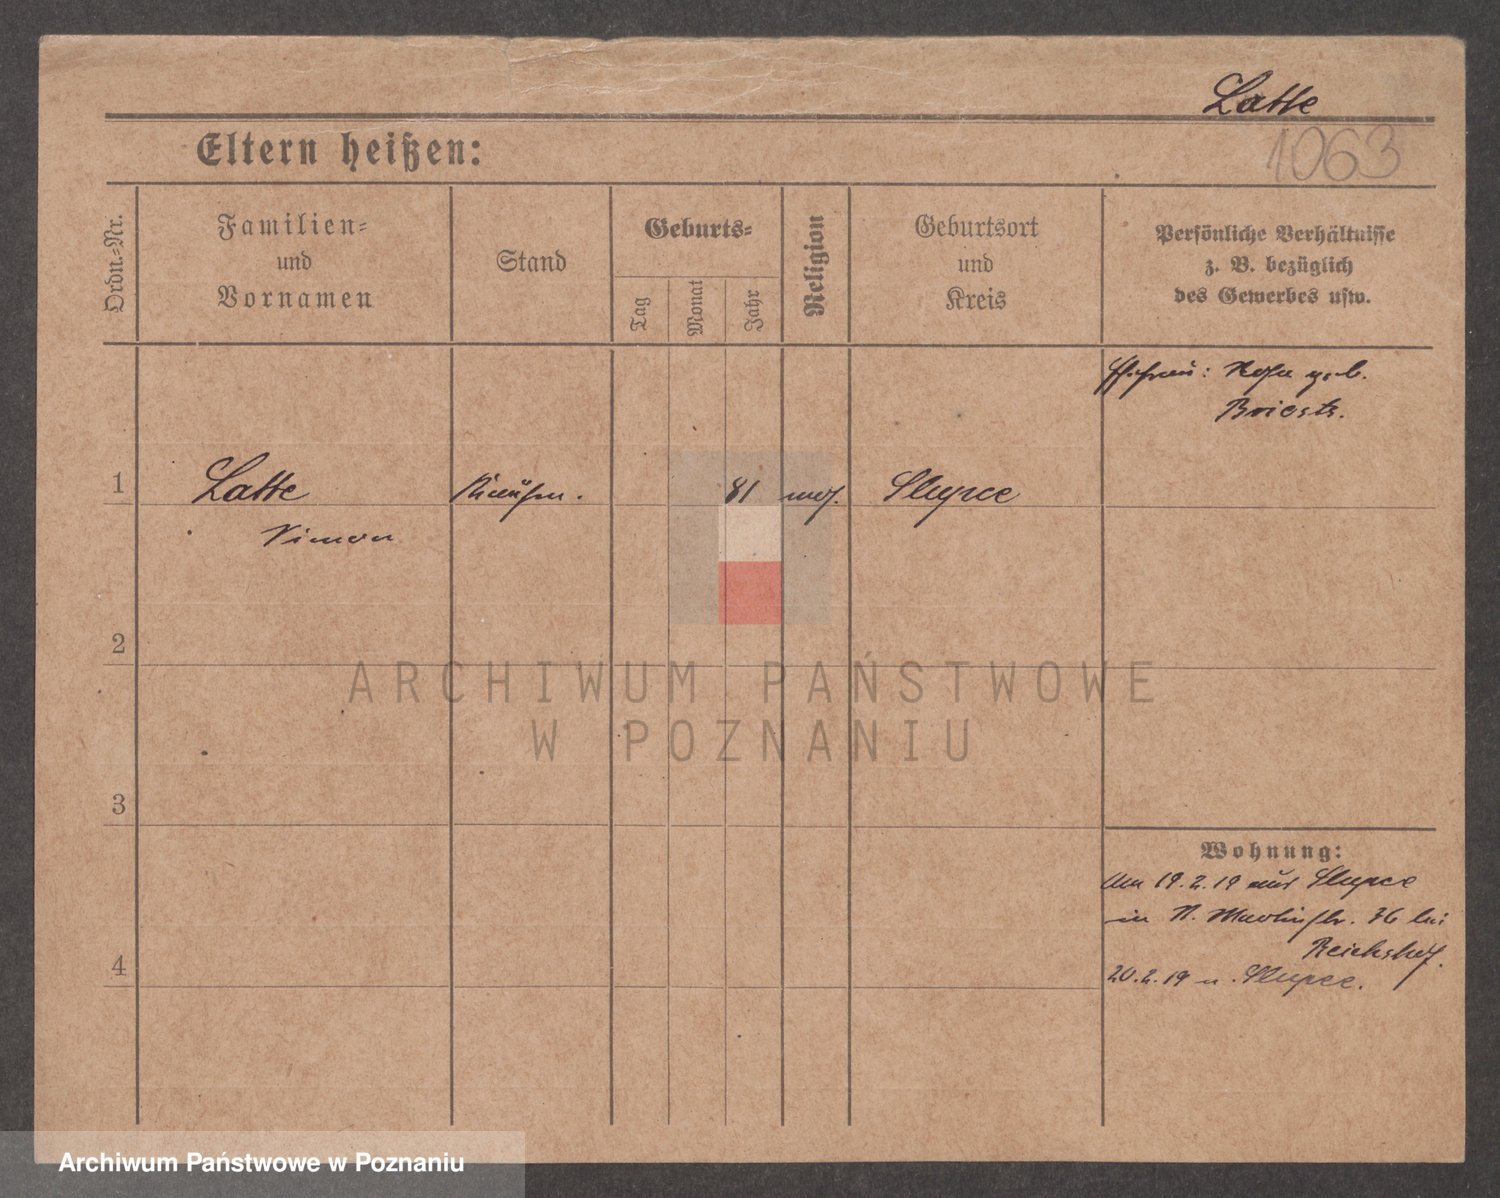 Latte
1063
Eltern heißen:
Ordn.-Nr.
Familien-
und
Vornamen
Stand
Geburts-
Tag
Monat
Jahr
Religion
Geburtsort
und
Kreis
Persönliche Verhältnisse
z. B. bezüglich
des Gewerbes usw.
Ehefrau: Rosa geb.
1
Latte
81
mos.
Slupce
Simon
2
ARCHIWUM PAŃSTWOWE
W POZNANIU
3
Wohnung:
Am 19.2.19 aus Slupce
in N. Martinstr. 36 bei
Reichshof.
4
20.2.19 n. Slupce.
Archiwum Państwowe w Poznaniu